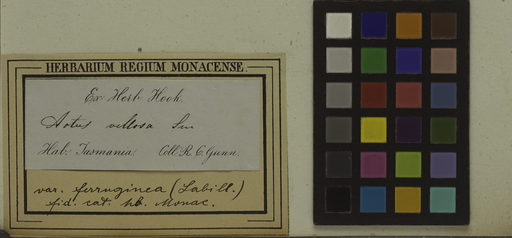 HERBARIUM REGIUM MONACENSE.
Ex Herb. Hook.
Aotus villosa Sm
Hab. Tasmania. Coll. R. C. Gunn.
var. ferruginea (Labill.)
fid. cat. hb. Monac.